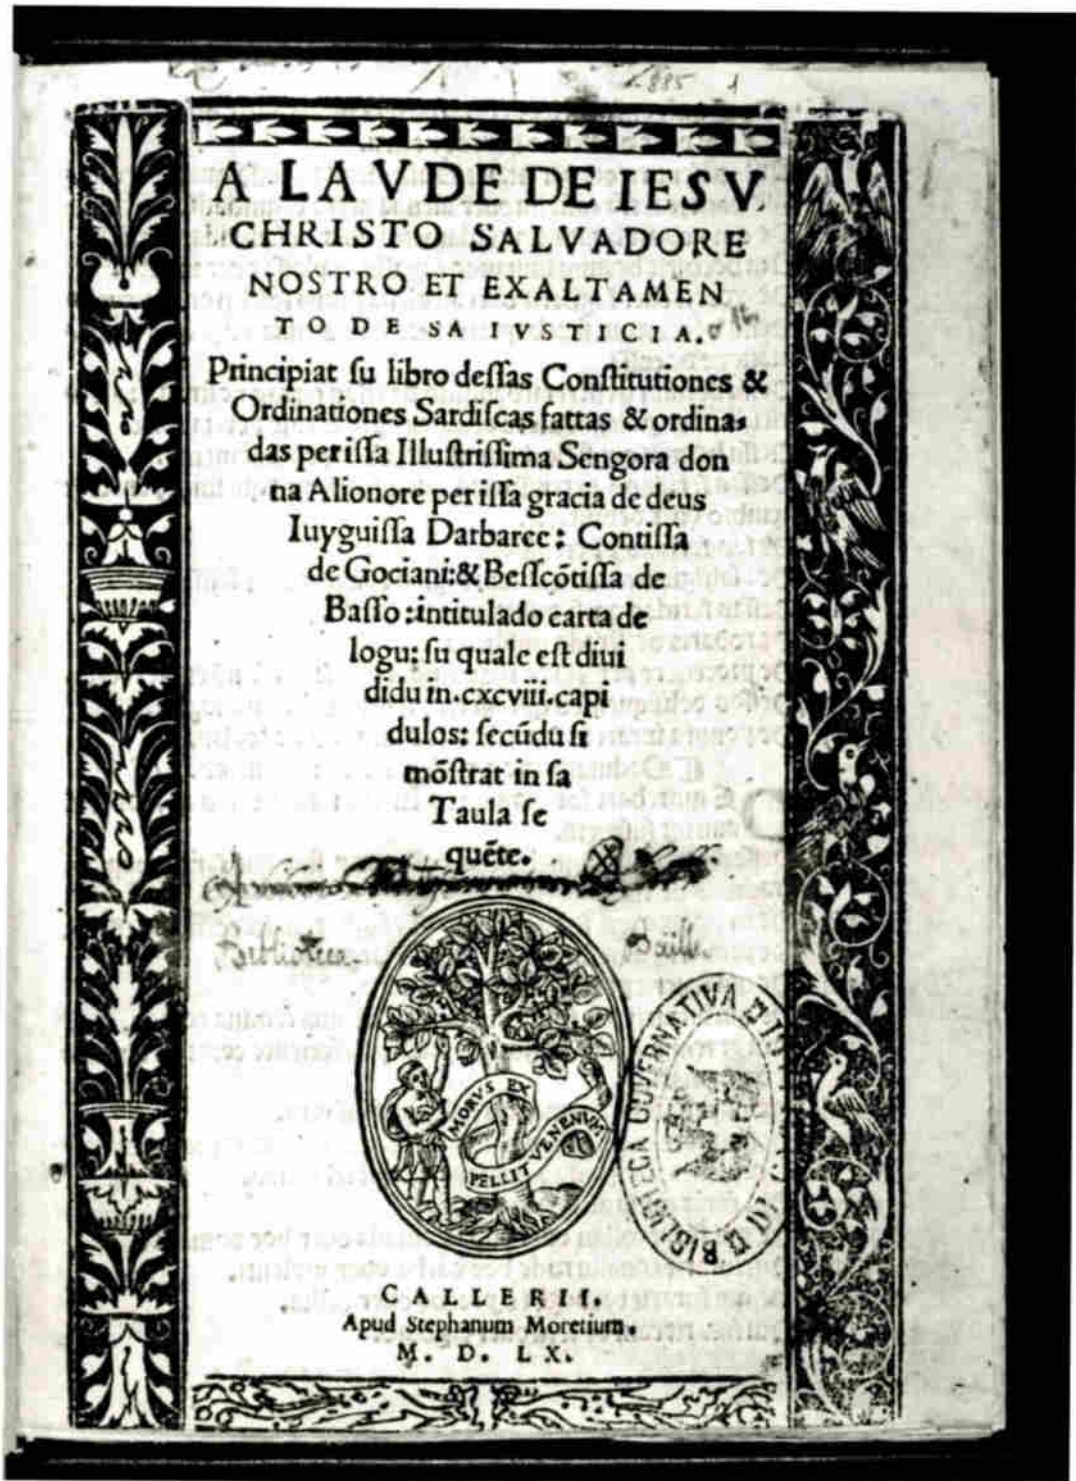 885 1
A LAVDE DE IESV
CHRISTO SALVADORE
NOSTRO ET EXALTAMEN
TO DE SA IVSTICIA.
Principiat ſu libro deſſas Conſtitutiones &
Ordinationes Sardiſcas fattas & ordina-
das per iſſa Illuſtriſſima Sengora don
na Alionore per iſſa gracia de deus
Iuyguiſſa Darbaree: Contiſſa
de Gociani:& Beſſcõtiſſa de
Baſſo :intitulado carta de
logu: ſu quale eſt diui
didu in .cxcviii. capi
dulos: ſecũdu ſi
mõſtrat in ſa
Taula ſe
quẽte.
Biblioteca
MORVS EX
PELLIT VENENVM
BIBLIOTECA GOVERNATIVA DI
CALLERII.
Apud Stephanum Moretium.
M. D. LX.